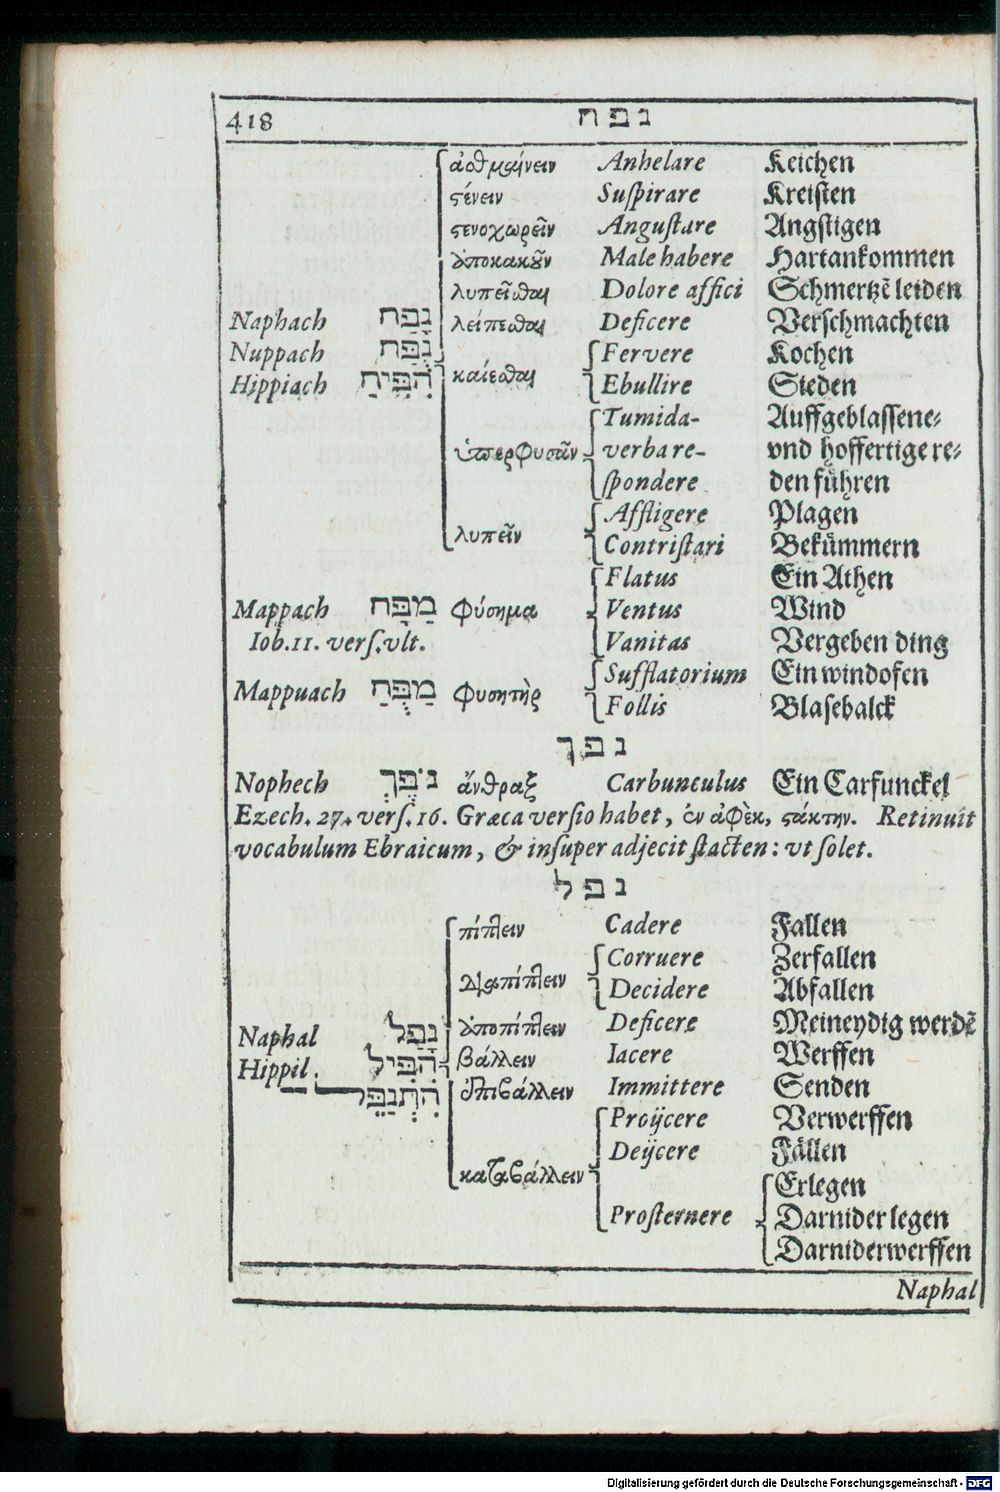 418 נפח
ἀσθμαίνειν Anhelare Keichen
στένειν Suſpirare Kreiſten
στενοχωρεῖν Anguſtare Angſtigen
ἀποκακοῦν Male habere Hartankommen
λυπεῖσθαι Dolore affici Schmertzẽ leiden
Naphach נָפַח λείπεσθαι Deficere Verſchmachten
Nuppach נֻפַּח Fervere Kochen
Hippiach הִפִּיחַ καίεσθαι Ebullire Sieden
Tumida- Auffgeblaſſene⸗
ὑπερφυσᾶν verba re- vnd hoffertige re⸗
ſpondere den fuͤhren
Affligere Plagen
λυπεῖν Contriſtari Bekuͤmmern
Flatus Ein Athen
Mappach מַפָּח φύσημα Ventus Wind
Iob. 11. verſ. vlt. Vanitas Vergeben ding
Sufflatorium Ein windofen
Mappuach מַפֻּחַ φυσητὴρ Follis Blasebalck
נפך
Nophech נֹפֶךְ ἄνθραξ Carbunculus Ein Carfunckel
Ezech. 27. verſ. 16. Græca verſio habet, ἐν ἀφὲκ, στάκτην. Retinuit
vocabulum Ebraicum, & inſuper adjecit ſtacten: vt ſolet.
נפל
πίπτειν Cadere Fallen
Corruere Zerfallen
διαπίπτειν Decidere Abfallen
Naphal נָפַל ἀποπίπτειν Deficere Meineydig werdẽ
Hippil. הִפִּיל βάλλειν Iacere Werffen
הִתְנַפֵּל ἐπιβάλλειν Immittere Senden
Proijcere Verwerffen
Deijcere Faͤllen
καταβάλλειν Erlegen
Proſternere Darnider legen
Darniderwerffen
Naphal
Digitalisierung gefördert durch die Deutsche Forschungsgemeinschaft - DFG